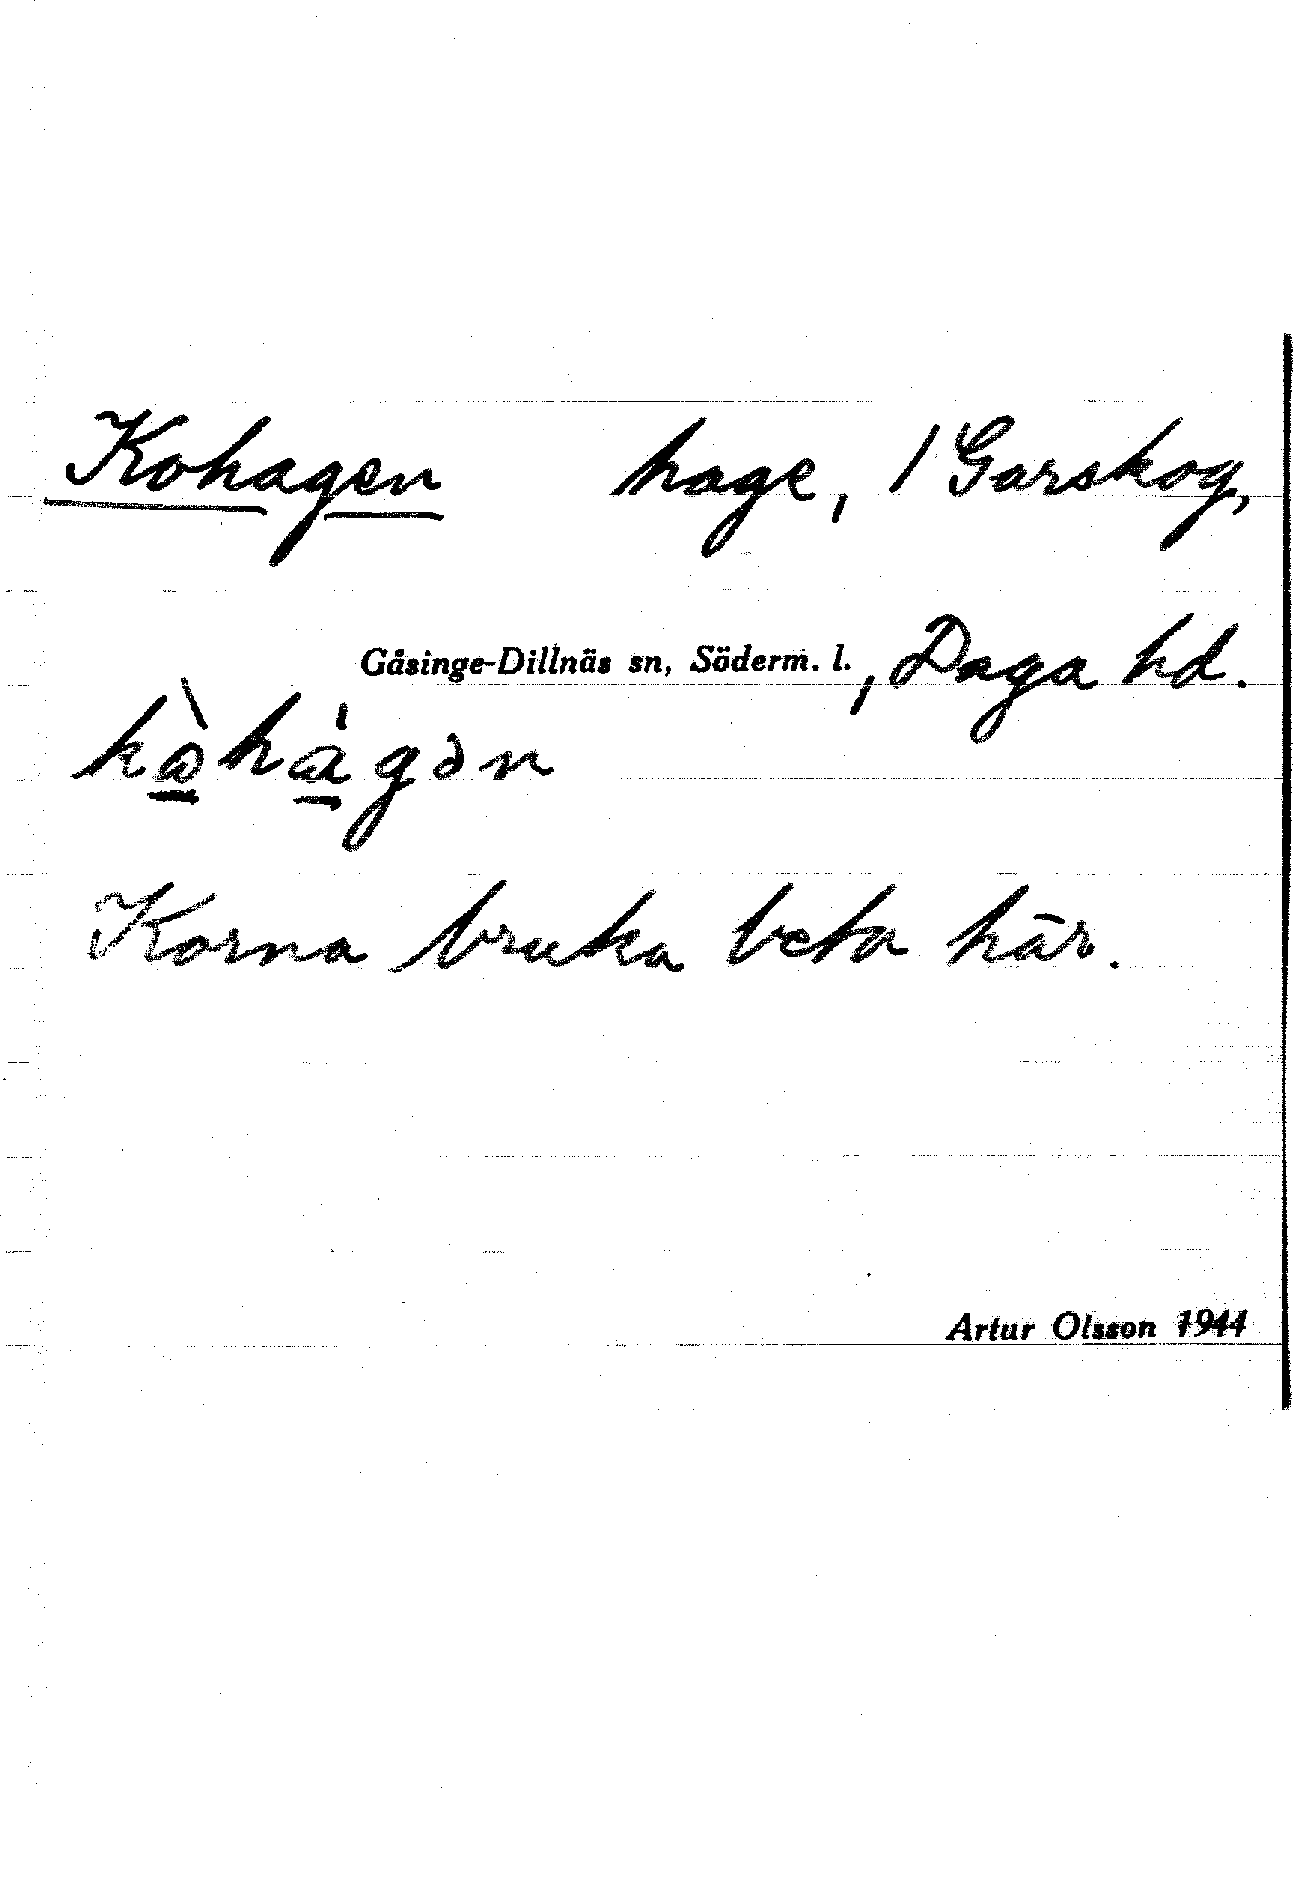 Kohagen hage, 1 Garskog,
Gåsinge-Dillnäs sn, Söderm. l., Daga hd.
Korna bruka beta här.
Artur Olsson 1944